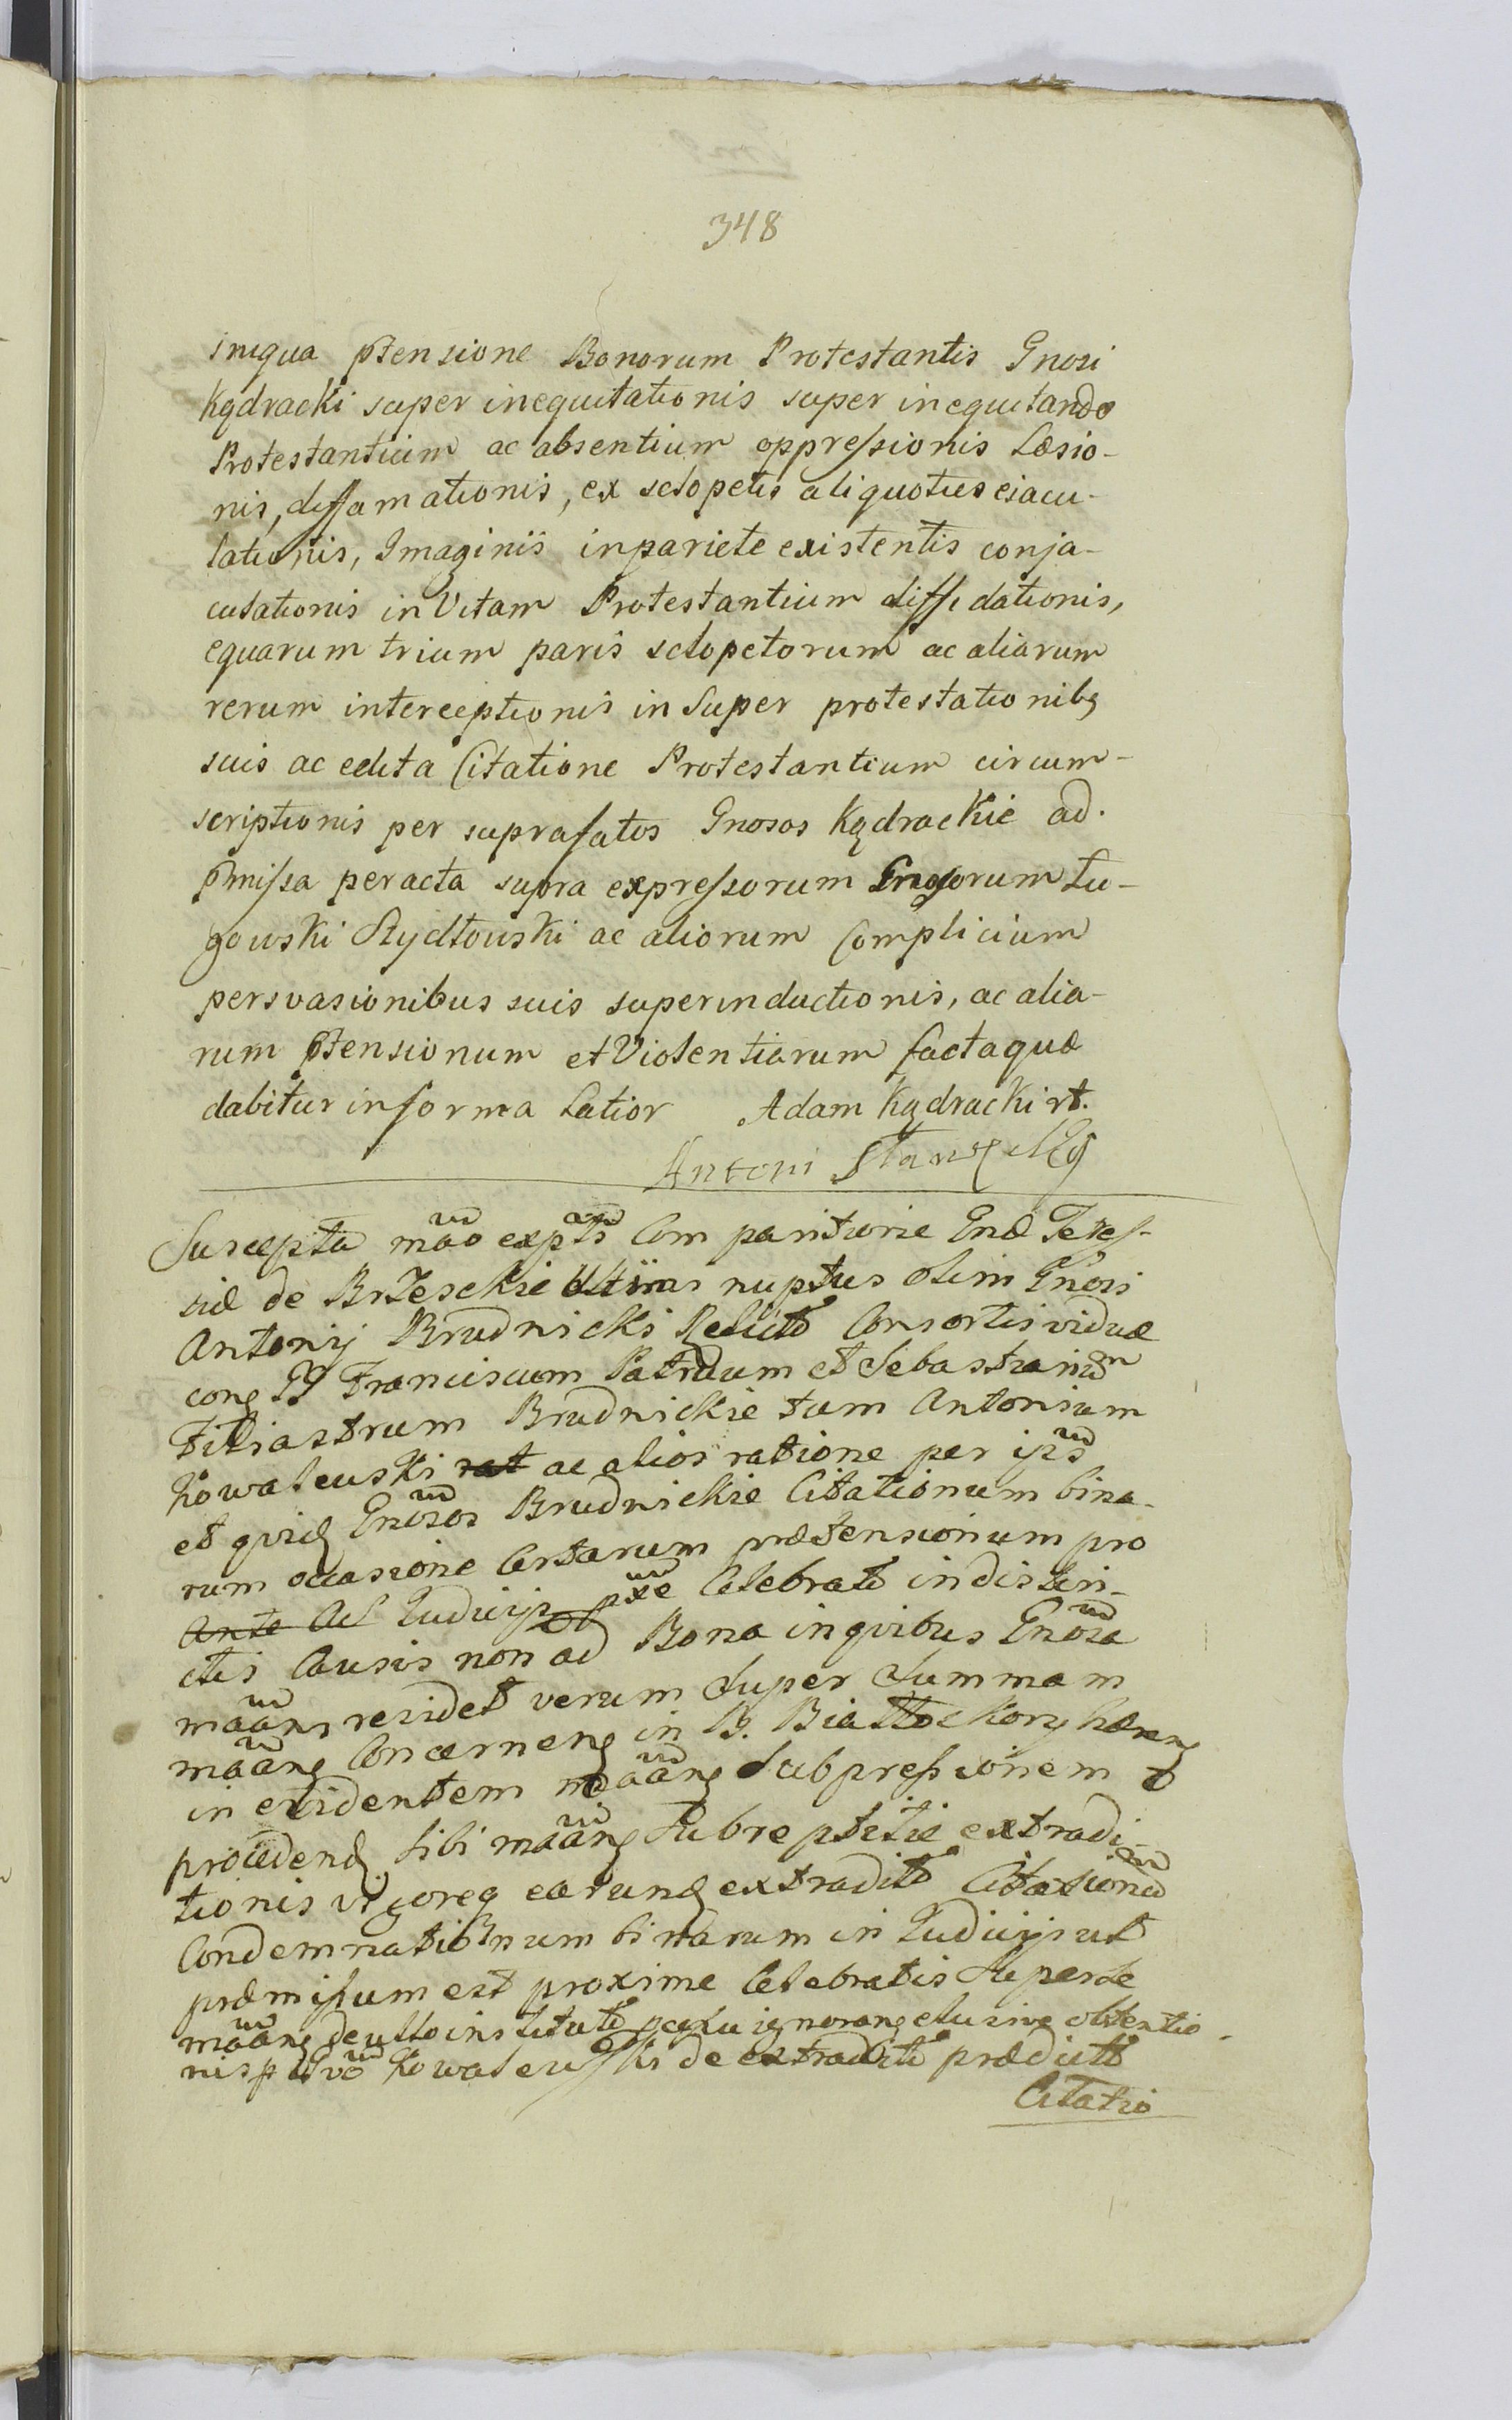 348
iniqua ptensione Bonorum Protestantis Gnosi
Kądracki super inequitationis super inequitando
Protestantium ac absentium oppressionis Læsio-
nis, diffamationis, ex sclopetis aliquoties eiacu-
lationis, Imaginis in pariete existentis conja-
culationis in Vitam Protestantium diffidationis,
equarum trium paris sclopetorum ac aliarum
rerum interceptionis in Super protestationibq
suis ac edita Citatione Protestantium circum-
scriptionis per suprafatos Gnosos Kądrackie ad.
pmissa peracta supra expressorum Gnosorum Lu-
gowski Szydłowski ac aliorum Complicium
persvasionibus suis superinductionis, ac alia-
rum ptensionum et Violentiarum facta quæ
dabitur in forma Latior Adam Kądracki rt.
Antoni
Suscepta mão expts Com paritione Gnæ Teres-
siæ de Brzeskie Ultimis nuptus olim Gnosi
Antonij Brudnicki Relictæ Consortis viduæ
cong GG Franciscum Patruum et Sebastianum
Filiastrum Brudnickie tum Antonium
Kowalewski rat ac alios ratione per ipsos
et quidq Gnosos Brudnickie Citationum bina-
rum occasione Certarum prætensionum pro
Ante Ad Judicijs pxe Celebrata indistin-
ctis Causis non ad Bona in quibus Gnosa
maans residet verum Super Summam
maang Concerneng in B. Białłoskory hæreng
in evidentem maang Subpressionem
procedendq sibi maang Subreptitie extradi-
tionis vigoreq earundq extradit Citationum
Condemnationum binarum in Judicijs ut
præmissum est proxime Celebratis Super se
maang de nullo instituti ignorang elusive obtentio-
nis Kowalewski de extradit prædict
Citatio